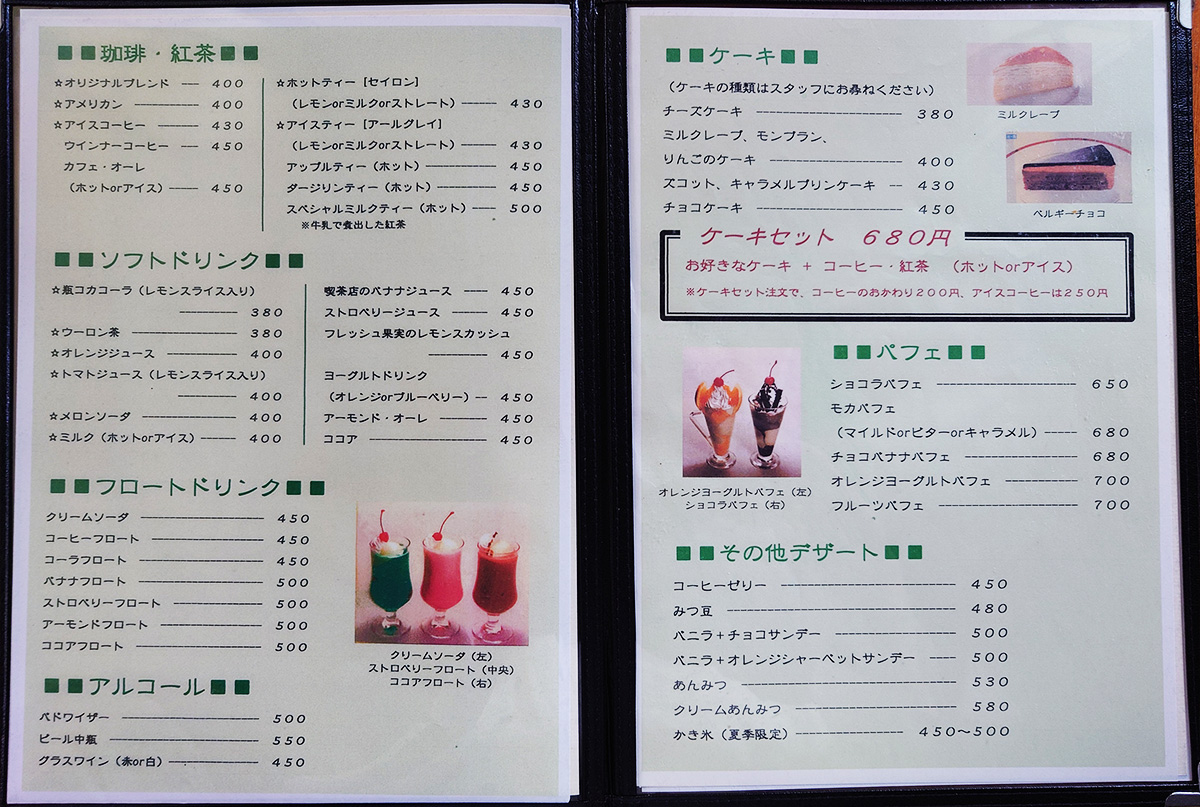 ■■珈琲・紅茶■■
☆オリジナルブレンド --- 400
☆アメリカン ------ 400
☆アイスコーヒー ---- 430
ウインナーコーヒー --- 450
カフェ・オーレ
(ホットorアイス)---- 450
☆ホットティー [セイロン]
(レモンorミルクorストレート)----- 430
☆アイスティー [アールグレイ]
(レモンorミルクorストレート)----- 430
アップルティー(ホット)-------- 450
ダージリンティー(ホット)------- 450
スペシャルミルクティー(ホット)---- 500
※牛乳で煮出した紅茶
■■ソフトドリンク■■
☆瓶コカコーラ(レモンスライス入り)
-------- 380
☆ウーロン茶 ------------- 380
☆オレンジジュース --------- 400
☆トマトジュース(レモンスライス入り)
-------- 400
☆メロンソーダ ------------ 400
☆ミルク(ホットorアイス)----- 400
喫茶店のバナナジュース ---- 450
ストロベリージュース ------ 450
フレッシュ果実のレモンスカッシュ
-------- 450
ヨーグルトドリンク
(オレンジorブルーベリー)-- 450
アーモンド・オーレ -------- 450
ココア ---------------- 450
■■フロートドリンク■■
クリームソーダ ---------------- 450
コーヒーフロート --------------- 450
コーラフロート ---------------- 450
バナナフロート ---------------- 500
ストロベリーフロート ------------ 500
アーモンドフロート ------------- 500
ココアフロート ---------------- 500
クリームソーダ(左)
ストロベリーフロート(中央)
ココアフロート(右)
■■アルコール■■
バドワイザー ----------------- 500
ビール中瓶 ------------------ 550
グラスワイン(赤or白)----------- 450
■■ケーキ■■
(ケーキの種類はスタッフにお尋ねください)
チーズケーキ ------------------- 380
ミルクレープ、モンブラン、
りんごのケーキ ----------------- 400
ズコット、キャラメルプリンケーキ -- 430
チョコケーキ ------------------- 450
ミルクレープ
ベルギーチョコ
ケーキセット 680円
お好きなケーキ + コーヒー・紅茶 (ホットorアイス)
※ケーキセット注文で、コーヒーのおかわり200円、アイスコーヒーは250円
■■パフェ■■
ショコラパフェ ------------------ 650
モカパフェ
(マイルドorビターorキャラメル)----- 680
チョコバナナパフェ --------------- 680
オレンジヨーグルトパフェ ---------- 700
フルーツパフェ ------------------ 700
オレンジヨーグルトパフェ(左)
ショコラパフェ(右)
■■その他デザート■■
コーヒーゼリー ----------------------- 450
みつ豆 ----------------------------- 480
バニラ+チョコサンデー ---------------- 500
バニラ+オレンジシャーベットサンデー ---- 500
あんみつ --------------------------- 530
クリームあんみつ --------------------- 580
かき氷(夏季限定)-------------- 450~500